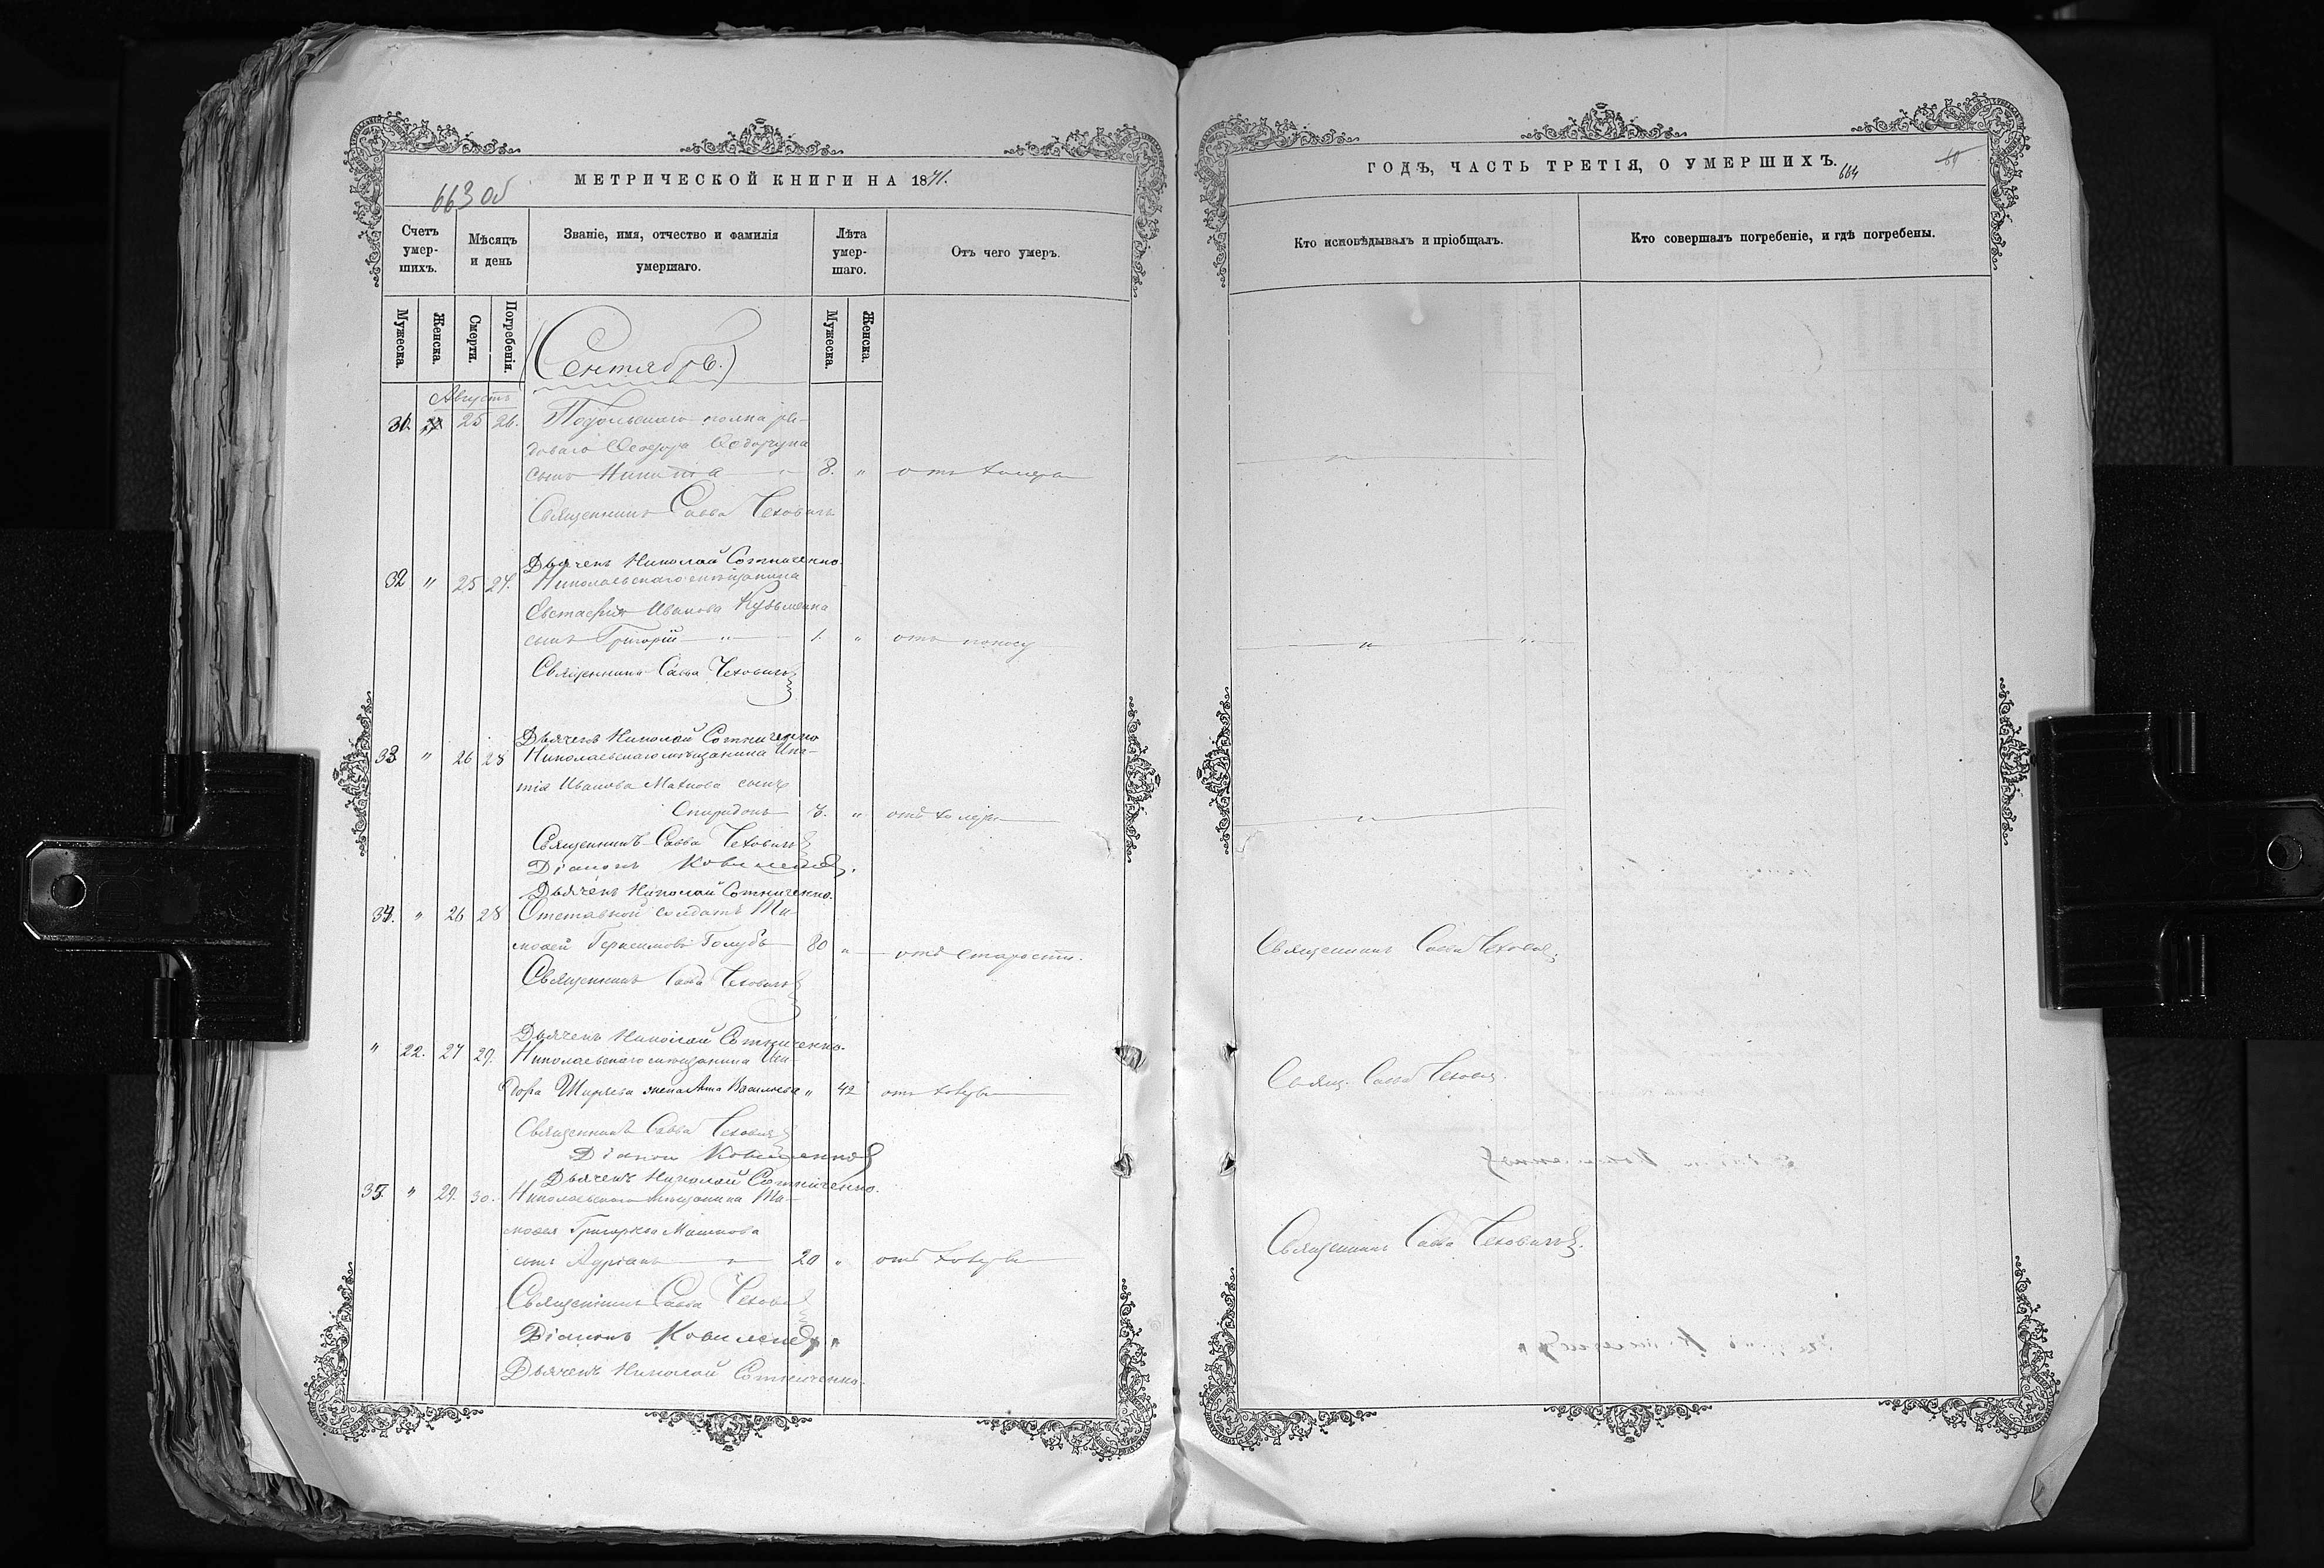 МЕТРИЧЕСКОЙ КНИГИ НА 1871.
663 об
Счетъ умер-шихъ.
Мѣсяцъ и день
Званіе, имя, отчество и фамилія умершаго.
Лѣта умер-шаго.
Отъ чего умеръ.
Мужеска.
Женска.
Смерти.
Погребенія.
Мужеска.
Женска.
(Сентябрь.)
Августъ
31. 25 26. Подольскаго полка ря-
доваго Ѳеодора
сынъ Никита 8. " отъ холеры
Священникъ Савва Чеховичъ
Дьячекъ Николай Сотниченко
32 " 25 27. Николаевскаго мѣщанина
Евстафія Иванова Кузьменка
сынъ Григорій " 1. " отъ поносу
Священникъ Савва Чеховичъ
Дьячекъ Николай Сотниченко
33 " 26 28 Николаевскаго мѣщанина Ипа-
тія Иванова Махнова сынъ
Спиридонъ 3. " отъ холеры
Священникъ Савва Чеховичъ
Діаконъ
Дьячекъ Николай Сотниченко.
34. " 26 28 Отставной солдатъ Ти-
моѳей Герасимовъ Голубъ 80 " отъ старости.
Священникъ Савва Чеховичъ
Дьячекъ Николай Сотниченко.
" 22. 27 29. Николаевскаго мѣщанина Иси-
дора Ширяева жена Анна Васильева " 42 отъ холеры
Священникъ Савва Чеховичъ
Діаконъ
Дьячекъ Николай Сотниченко.
35. " 29. 30. Николаевскаго мѣщанина Ти-
моѳея Григорьева Машкова
сынъ Адріанъ " 20 " отъ холеры
Священникъ Савва Чеховичъ
Діаконъ
Дьячекъ Николай Сотниченко.
ГОДЪ, ЧАСТЬ ТРЕТІЯ, О УМЕРШИХЪ.
664
Кто исповѣдывалъ и пріобщалъ.
Кто совершалъ погребеніе, и гдѣ погребены.
"
" "
"
Священникъ Савва Чеховичъ.
Свящ. Савва Чеховичъ.
Священникъ Савва Чеховичъ.